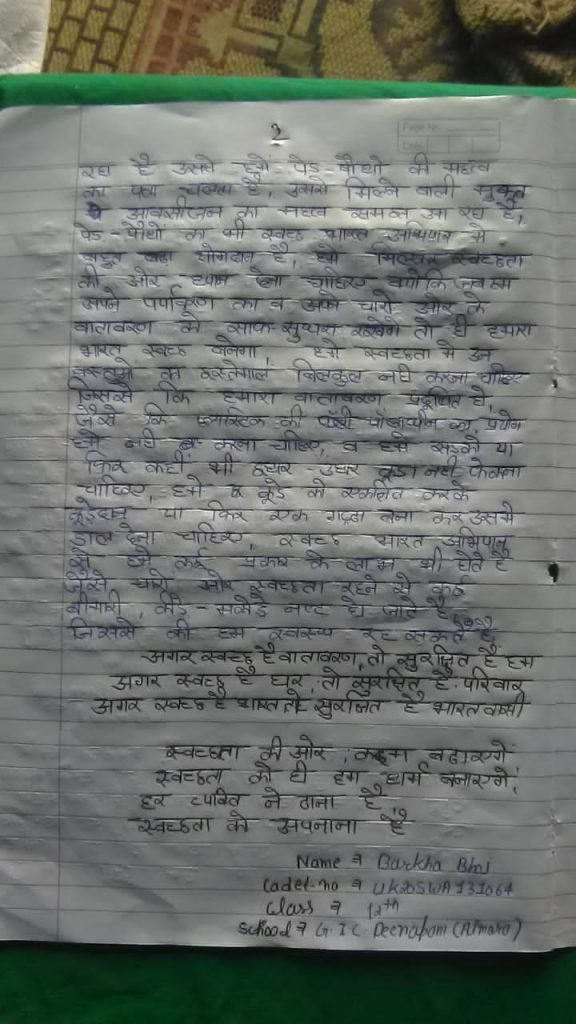 2
Page No
Date
रहा है उससे हमे पेड़-पौधो की महत्व
का पता चलता है, उससे मिलने वाली मुक्त
आक्सीजन का महत्व समझ आ रहा है,
पेड़-पौधो का भी स्वच्छ भारत अभियान मे
बहुत बड़ा योगदान है, हमे मिलकर स्वच्छता
की ओर ध्यान देना चाहिए क्योकि जब हम
अपने पर्यावरण का व अपने चारो ओर के
वातावरण को साफ-सुथरा रखेगे तो ही हमारा
भारत स्वच्छ बनेगा, हमे स्वच्छता मे उन
वस्तुओ का इस्तेमाल बिलकुल नही करना चाहिए
जिससे कि हमारा वातावरण प्रदूषित हो,
जैसे कि प्लास्टिक की पॉलीथीन का प्रयोग
हमे नही करना चाहिए, व हमे सड़को या
फिर कही भी इधर-उधर कूडा नही फेकना
चाहिए, हमे कूडे को एकत्रित करके
कूडेदान या फिर एक गढ्ढा बना कर उसमे
डाल देना चाहिए, स्वच्छ भारत अभियान
से हमे कई प्रकार के लाभ भी होते है
जैसे चारो ओर स्वच्छता रहने से कई
बीमारी, कीडे-मकोडे नष्ट हो जाते है
जिससे की हम स्वस्थ रह सकते है
अगर स्वच्छ है वातावरण, तो सुरक्षित है हम
अगर स्वच्छ है घर, तो सुरक्षित है परिवार
अगर स्वच्छ है भारत तो सुरक्षित है भारतवासी
स्वच्छता की ओर, कदम बढाएगे
स्वच्छता को ही हम धर्म बनाएगे,
हर व्यक्ति ने ठाना है
स्वच्छता को अपनाना है
Name → Barkha Bhoj
Cadet-no → UK20SWA131064
Class → 12th
School → G.I.C. Deenapani (Almora)